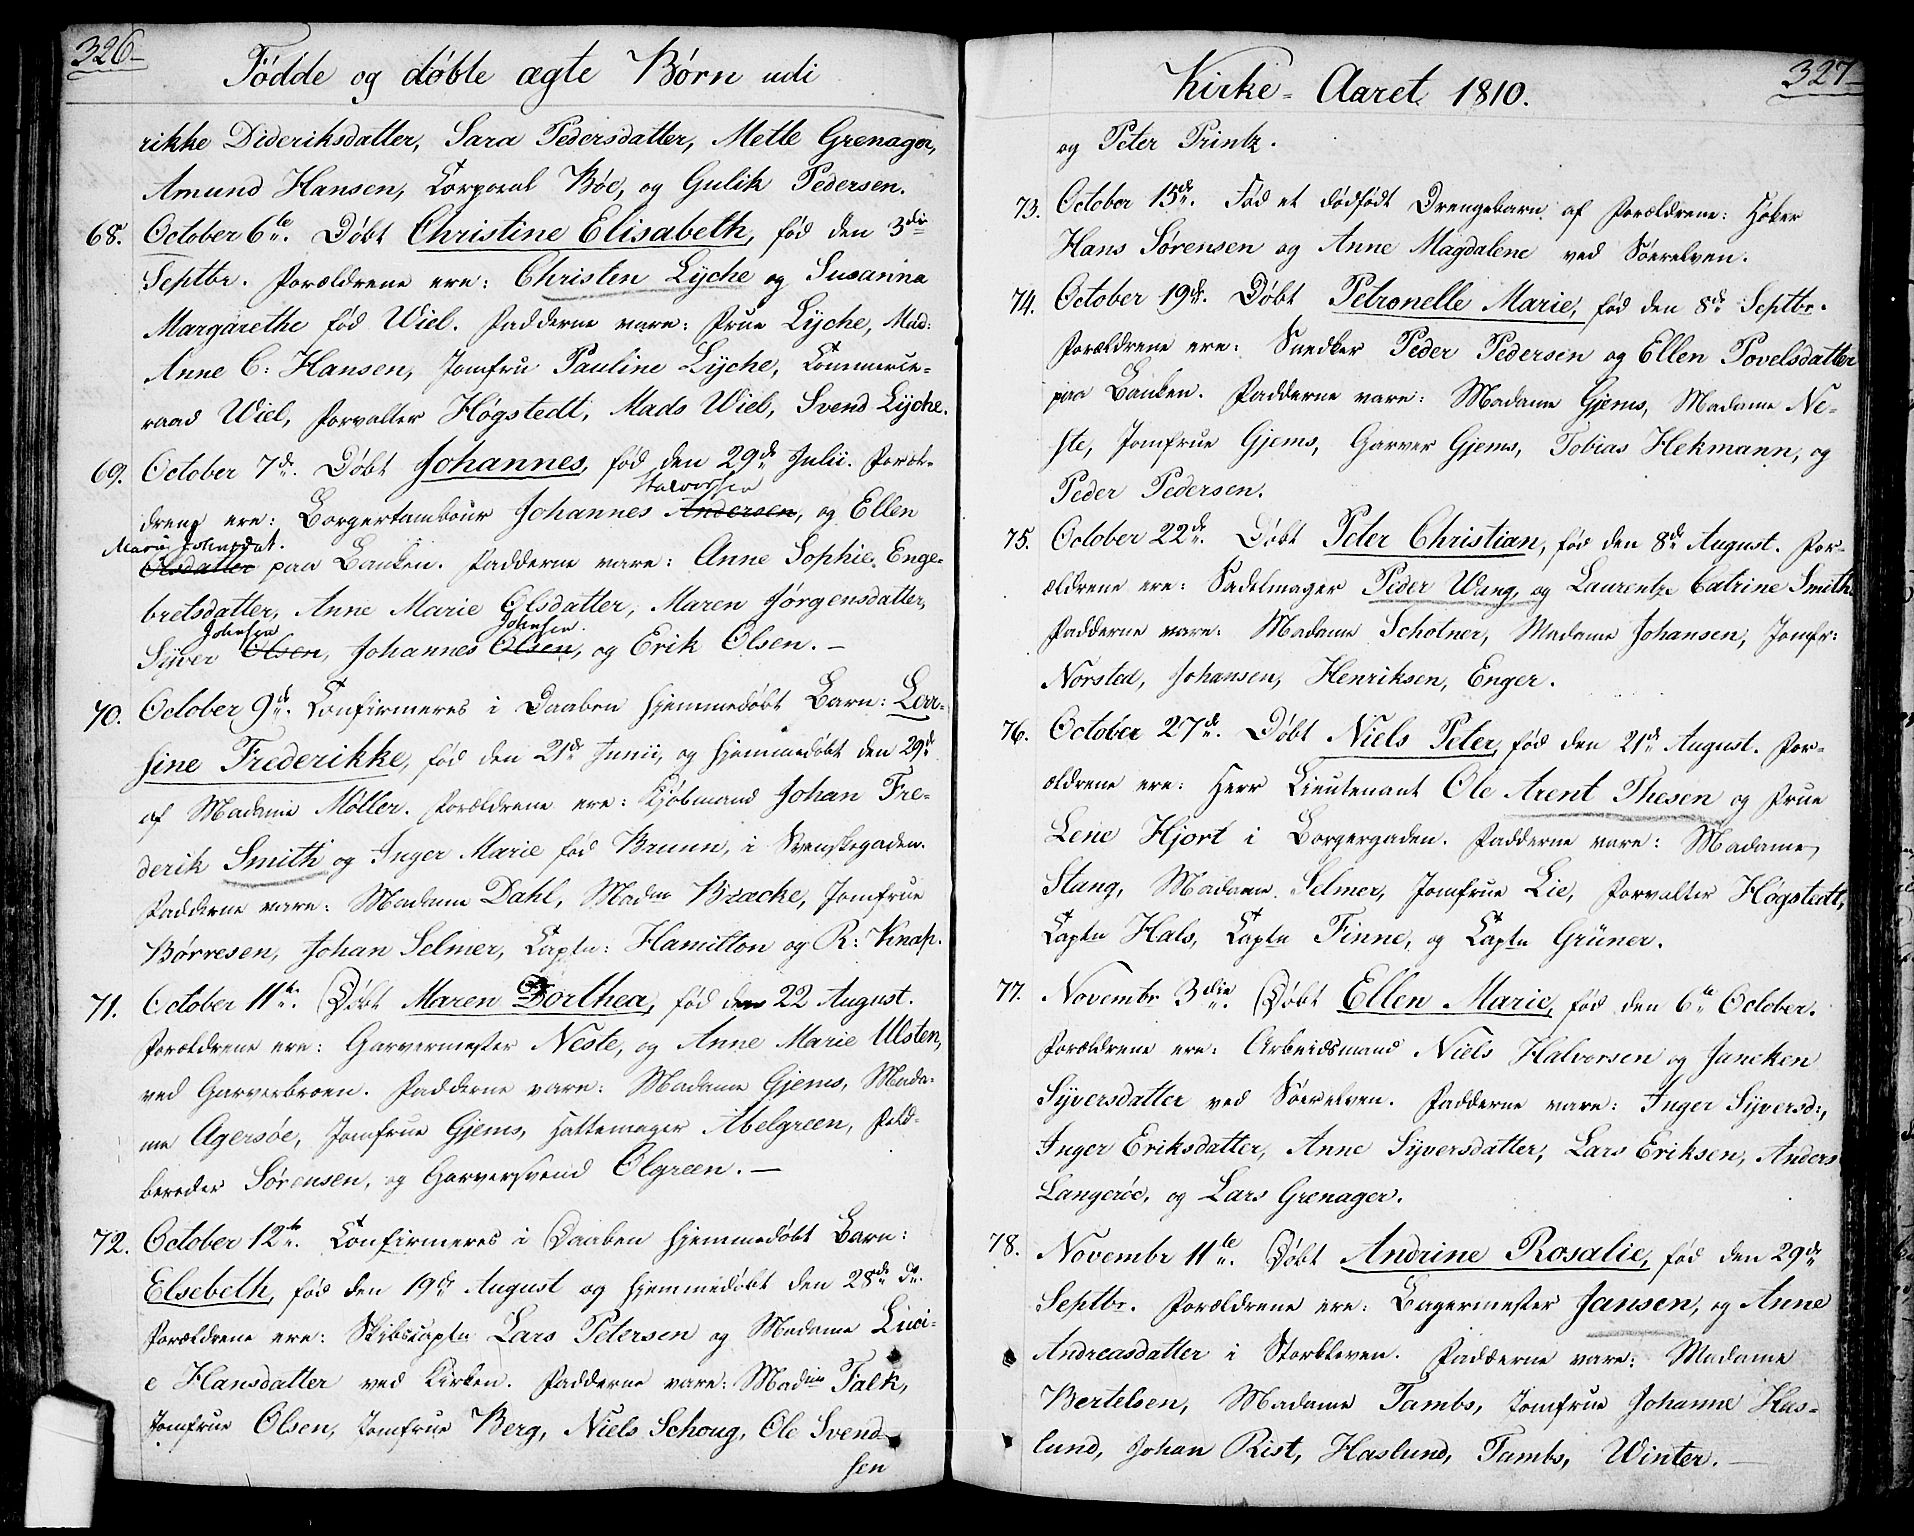 326
Fødde og døbte ægte Børn udi
rikke Dideriksdatter, Sara Pedersdatter, Mette Grenager,
Amund Hansen, Corporal Bøe, og Gulik Pedersen.
68. October 6te. Døbt Christine Elisabeth, fød den 3die
Septbr. Forældrene ere: Christen Lyche og Susanna
Margarethe fød Wiel. Fadderne vare: Frue Lyche, Mad:
Anne C: Hansen, Jomfru Pauline Lyche, Commerce-
raad Wiel, Forvalter Høgstedt, Mads Wiel, Svend Lyche.
69. October 7de. Døbt Johannes, fød den 29de Julii. Foræl-
Halvorsen
drene ere: Borgertambour Johannes Andersen, og Ellen
Marie Johnsdat.
Olsdatter paa Banken. Fadderne vare: Anne Sophie Enge-
bretsdatter, Anne Marie Olsdatter, Maren Jørgensdatter,
Johnsen Johnsen.
Syver Olsen, Johannes Olsen, og Erik Olsen. —
70. October 9de. Confirmeres i Daaben hjemmedøbt Barn: Lov-
sine Frederikke, fød den 21de Junii, og hjemmedøbt den 29de
af Madame Møller. Forældrene ere: Kjøbmand Johan Fre-
derik Smith og Inger Marie fød Bruun, i Svenskegaden.
Fadderne vare: Madame Dahl, Madm Bracke, Jomfrue
Børresen, Johan Selmer, Captn: Hamilton og R: Knap.
71. October 11te. Døbt Maren Dorthea, fød den 22 August.
Forældrene ere: Garvermester Neste, og Anne Marie Ulsten,
ved Garverbroen. Fadderne vare: Madame Gjems, Mada-
me Agersøe, Jomfrue Gjems, Hattemager Abelgreen, Feld-
bereder Sørensen, og Garversvend Olgreen. —
72. October 12te. Confirmeres i Daaben hjemmedøbt Barn:
Elsebeth, fød den 19de August og hjemmedøbt den 28de do.
Forældrene ere: Skibscaptn Lars Petersen og Madame Luci-
e Hansdatter ved Kirken. Fadderne vare: Madme Falk,
Jomfrue Olsen, Jomfrue Berg, Niels Schoug, Ole Svend-
sen
327
Kirke-Aaret 1810.
og Peter Printz.
73. October 15de. Fød et dødfødt Drengebarn af Forældrene: Høker
Hans Sørensen og Anne Magdalene ved Søerelven.
74. October 19de. Døbt Petronelle Marie, fød den 8de Septbr.
Forældrene ere: Snedker Peder Pedersen og Ellen Povelsdatter
paa Banken. Fadderne vare: Madame Gjems, Madame Ne-
ste, Jomfrue Gjems, Garver Gjems, Tobias Hekmann, og
Peder Pedersen.
75. October 22de. Døbt Peter Christian, fød den 8de August. For-
ældrene ere: Sadelmager Peder Wang, og Laurentze Catrine Smith.
Fadderne vare: Madame Schotner, Madame Johansen, Jomfr:
Norsted, Johansen, Henriksen, Enger.
76. October 27de. Døbt Niels Peter, fød den 21de August. For-
ældrene ere: Herr Lieutenant Ole Arent Thesen og Frue
Lene Hjort i Borgergaden. Fadderne vare: Madame
Stang, Madame Selmer, Jomfrue Lie, Forvalter Høgstedt,
Captn Hals, Captn Finne, og Captn Grüner.
77. Novembr 3die. Døbt Ellen Marie, fød den 6te October.
Forældrene ere: Arbeidsmand Niels Halvorsen og Jancken
Syversdatter ved Søerelven. Fadderne vare: Inger Syversd:,
Inger Eriksdatter, Anne Syversdatter, Lars Eriksen, Anders
Langerøe, og Lars Grenager.
78. Novembr 11te. Døbt Andrine Rosalie, fød den 29de
Septbr. Forældrene ere: Bagermester Jansen, og Anne
Andreasdatter i Storkleven. Fadderne vare: Madame
Bertelsen, Madame Tambs, Jomfrue Johanne Has-
lund, Johan Rist, Haslund, Tambs, Winter. —